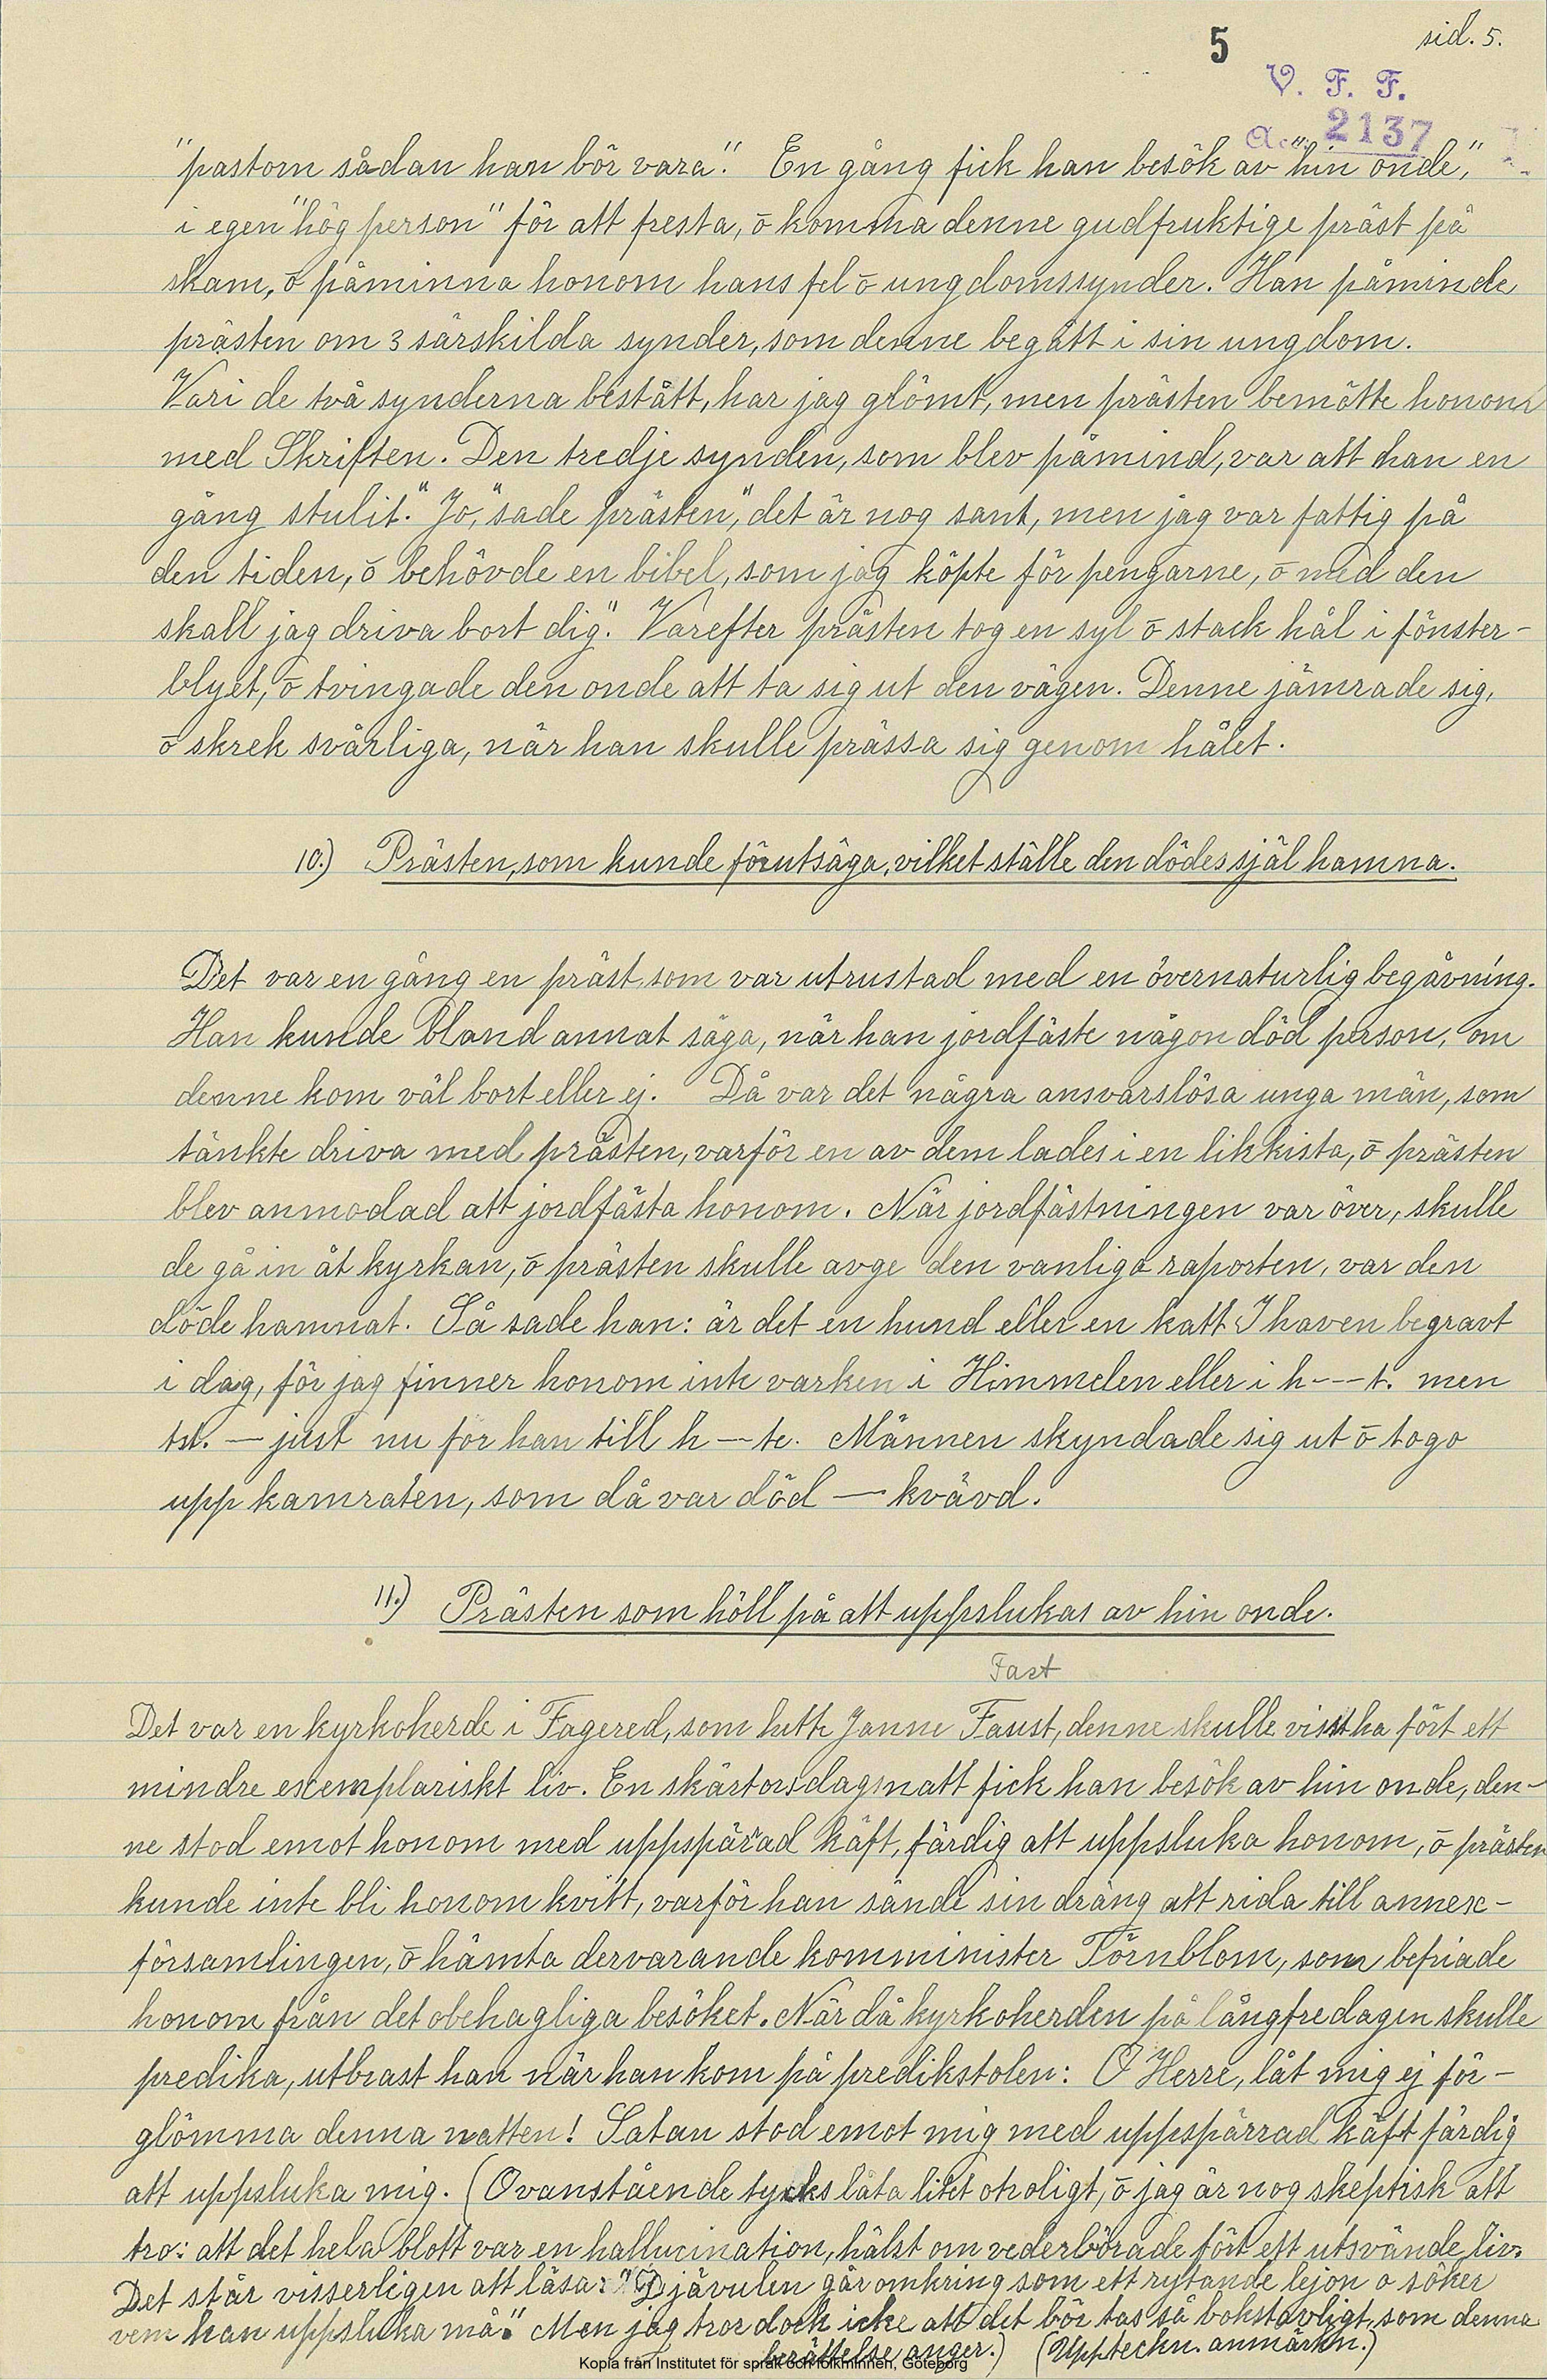 5
sid. 5.
V. F. F.
2137
"pastorn sådan han bör vara". En gång fick han besök av "hin onde,"
i egen "hög person" för att fresta, o komma denne gudfruktige präst på
skam, o påminna honom hans fel o ungdomssynder. Han påminde
prästen om 3 särskilda synder, som denne begått i sin ungdom.
Vari de två synderna bestått, har jag glömt, men prästen bemötte honom
med Skriften. Den tredje synden, som blev påmind, var att han en
gång stulit. "Jo," sade prästen, "det är nog sant, men jag var fattig på
den tiden, o behövde en bibel, som jag köpte för pengarne, o med den
skall jag driva bort dig". Varefter prästen tog en syl o stack hål i fönster-
blyet, o tvingade den onde att ta sig ut den vägen. Denne jämrade sig,
o skrek svårliga, när han skulle prässa sig genom hålet.
10.) Prästen, som kunde förutsäga, vilket ställe den dödes själ hamna.
Det var en gång en präst som var utrustad med en övernaturlig begåvning.
Han kunde bland annat säga, när han jordfäste någon död person, om
denne kom väl bort eller ej. Då var det några ansvarslösa unga män, som
tänkte driva med prästen, varför en av dem lades i en likkista, o prästen
blev anmodad att jordfästa honom. När jordfästningen var över, skulle
de gå in åt kyrkan, o prästen skulle avge den vanliga raporten, var den
döde hamnat. Så sade han: är det en hund eller en katt I haven begravt
i dag, för jag finner honom inte varken i Himmelen eller i h---t. men
tst. — just nu för han till h—te. Männen skyndade sig ut o togo
upp kamraten, som då var död — kvävd.
11.) Prästen som höll på att uppslukas av hin onde.
Fast
Det var en kyrkoherde i Fagered, som hette Janne Faust, denne skulle visst ha fört ett
mindre exemplariskt liv. En skärtorsdagsnatt fick han besök av hin onde, den-
ne stod emot honom med uppspärad käft, färdig att uppsluka honom, o prästen
kunde inte bli honom kvitt, varför han sände sin dräng att rida till annex-
församlingen, o hämta dervarande komminister Törnblom, som befriade
honom från det obehagliga besöket. När då kyrkoherden på långfredagen skulle
predika, utbrast han när han kom på predikstolen: O Herre, låt mig ej för-
glömma denna natten! Satan stod emot mig med uppspärrad käft färdig
att uppsluka mig. (Ovanstående tycks låta litet otroligt, o jag är nog skeptisk att
tro: att det hela blott var en hallucination, hälst om vederbörade fört ett utsvände liv.
Det står visserligen att läsa: "Djävulen går omkring som ett rytande lejon o söker
vem han uppsluka må". Men jag tror dock icke att det bör tas så bokstavligt, som denna
berättelse anger.) (Uppteckn. anmärkn.)
Kopia från Institutet för språk och folkminnen, Göteborg